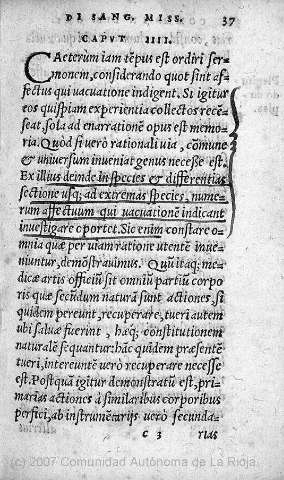 DE SANG. MISS. 37
CAPVT IIII.
CAeterùm iam tēpus est ordiri ser-
monem, considerando quot sint af-
fectus qui vacuatione indigent. Si igitur
eos quispiam experientia collectos recē-
seat, sola ad enarrationē opus est memo-
ria. Quòd si verò rationali via, comune
& uniuersum inueniat genus necesse est.
Ex illius deinde in species & differentias
sectione usq; ad extremas species, nume-
rum affectuum qui vacuationē indicant
inuestigare oportet. Sic enim constare o-
mnia quæ per uiam ratione utentē inue-
niuntur, demōstrauimus. Quū itaq; me-
dicæ artis officiū sit omniū partiū corpo
ris quæ secūdum naturā sunt actiones, si
quidem pereunt, recuperare, tueri autem
ubi saluæ fuerint, hæq; constitutionem
naturalē sequantur: hāc quidem præsentē
tueri, intereuntē verò recuperare necesse
est. Postquā igitur demonstratū est, pri-
marias actiones à similaribus corporibus
perfici, ab instrumētarijs verò secunda-
c 3 rias
(c) 2007 Comunidad Autónoma de La Rioja